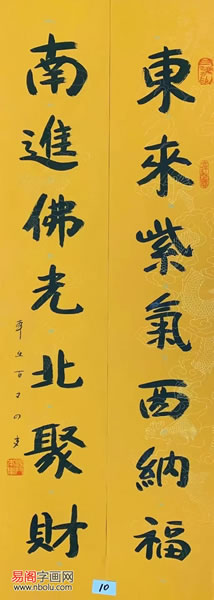 東來紫氣西納福
南進佛光北聚財
10
易阁字画网
www.nbolu.com